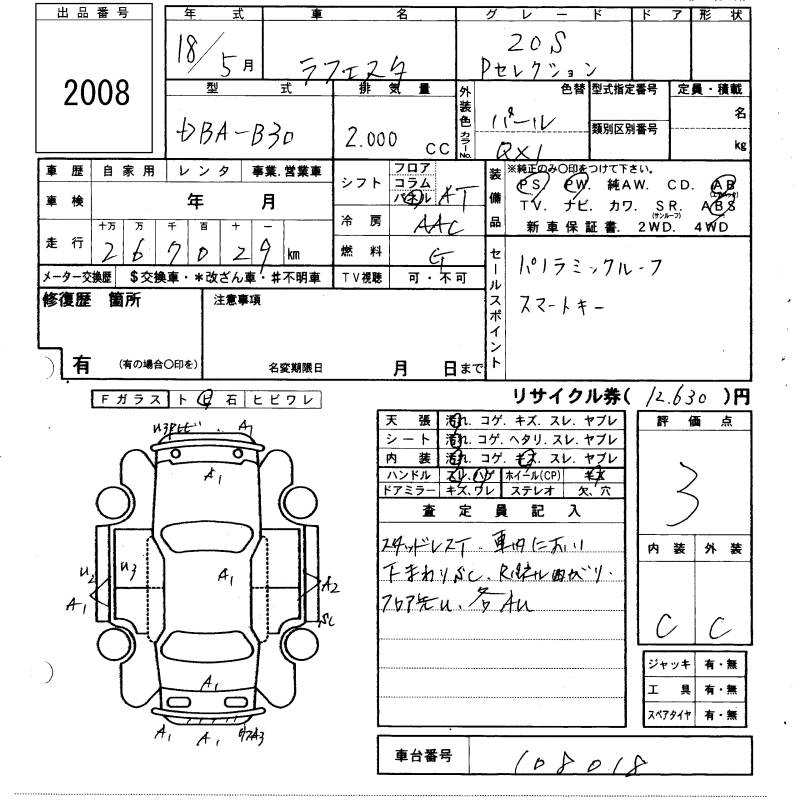 出品番号 年式 車名 グレード ドア 形状
2008 18/5月 ラフェスタ 20S Pセレクション
型式 排気量 外装色 カラーNo. 色替 型式指定番号 類別区別番号 定員・積載 名 kg
DBA-B30 2.000 CC パール QX1
車歴 自家用 レンタ 事業.営業車 シフト フロア コラム パネル AT
装備品 ※純正のみ〇印をつけて下さい。
PS PW. 純AW. CD. AB
TV. ナビ. カワ. SR. ABS
(サンルーフ)
新車保証書. 2WD. 4WD
車検 年 月 冷房 AAC
走行 十万 万 千 百 十 一
2 6 7 0 2 9 km 燃料 G
メーター交換歴 $交換車・*改ざん車・#不明車 TV視聴 可・不可
セールスポイント パノラミックルーフ
スマートキー
修復歴 箇所 注意事項
有 (有の場合〇印を) 名変期限日 月 日まで
リサイクル券( 12.630 )円
Fガラス ト ビ 石 ヒビワレ
天張 汚れ. コゲ. キズ. スレ. ヤブレ
シート 汚れ. コゲ. ヘタリ. スレ. ヤブレ
内装 汚れ. コゲ. キズ. スレ. ヤブレ
ハンドル スレ.ハゲ ホイール(CP) キズ
ドアミラー キズ.ワレ ステレオ 欠、穴
評価点
3
内装 外装
C C
査定員記入
スタッドレスT. 車内におい
下まわりSC. Rパネル凹ベリ.
フロア先U. 各AU
A1
A1
U2 U3 A1 A1 A2
SC
A1
A1 A1
ジャッキ 有・無
工具 有・無
スペアタイヤ 有・無
車台番号 108018